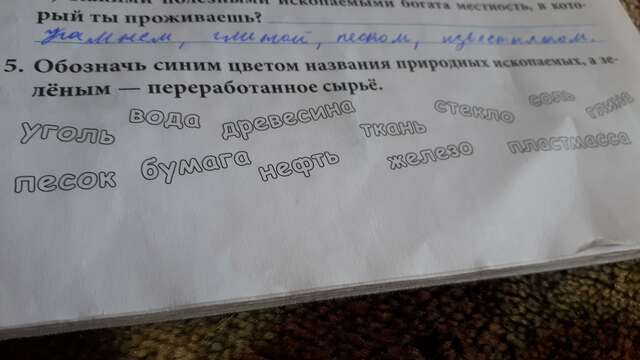 полезными ископаемыми богата местность, в кото-
рый ты проживаешь?
камнем, глиной, песком, известняком.
5. Обозначь синим цветом названия природных ископаемых, а зе-
лёным — переработанное сырьё.
уголь вода древесина ткань стекло соль глина
песок бумага нефть железо пластмасса